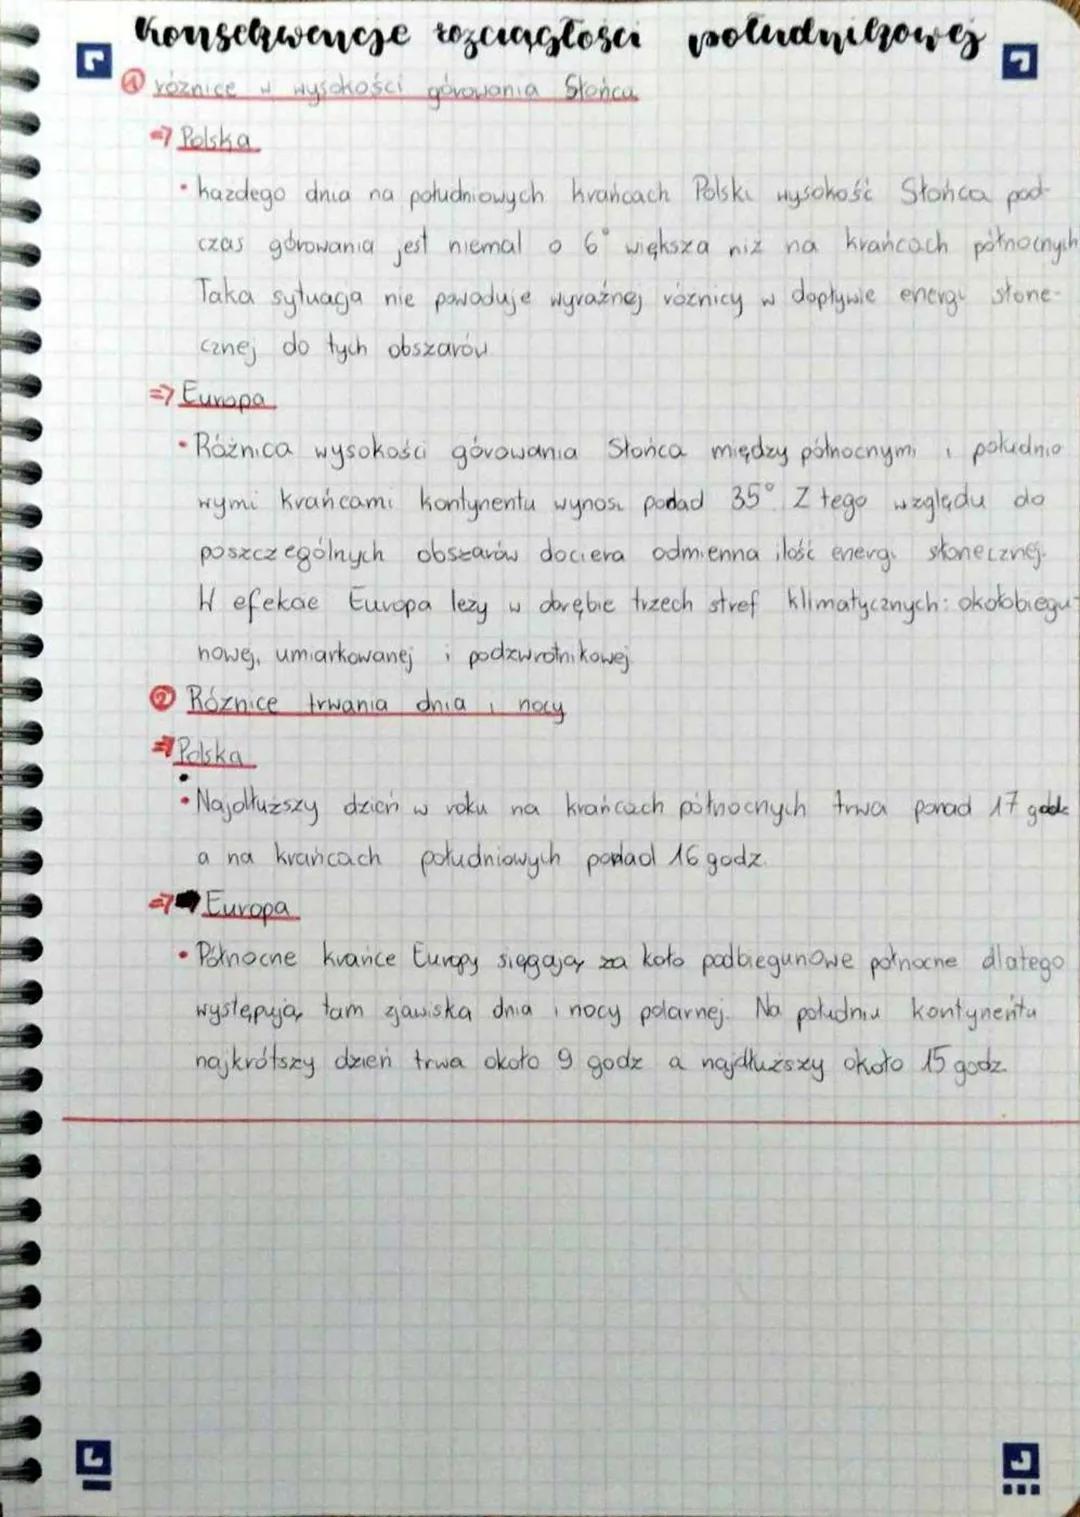 Konsekwencje rozciągłości południkowej
① różnice w wysokości górowania Słońca
=> Polska
• każdego dnia na południowych krańcach Polski wysokość Słońca pod-
czas górowania jest niemal o 6° większa niż na krańcach północnych
Taka sytuacja nie powoduje wyraźnej różnicy w dopływie energi słone-
cznej do tych obszarów
=> Europa
• Różnica wysokości górowania Słońca między północnymi i południo
wymi krańcami kontynentu wynosi ponad 35° Z tego względu do
poszczególnych obszarów dociera odmienna ilość energi słonecznej.
W efekcie Europa leży w obrębie trzech stref klimatycznych: okołobiegu-
nowej, umiarkowanej i podzwrotnikowej
② Różnice trwania dnia i nocy
=> Polska
• Najdłuższy dzień w roku na krańcach północnych trwa ponad 17 godz
a na krańcach południowych ponad 16 godz.
=> Europa
• Północne krańce Europy sięgają za koło podbiegunowe północne dlatego
występują tam zjawiska dnia i nocy polarnej. Na południu kontynentu
najkrótszy dzień trwa około 9 godz a najdłuższy około 15 godz.